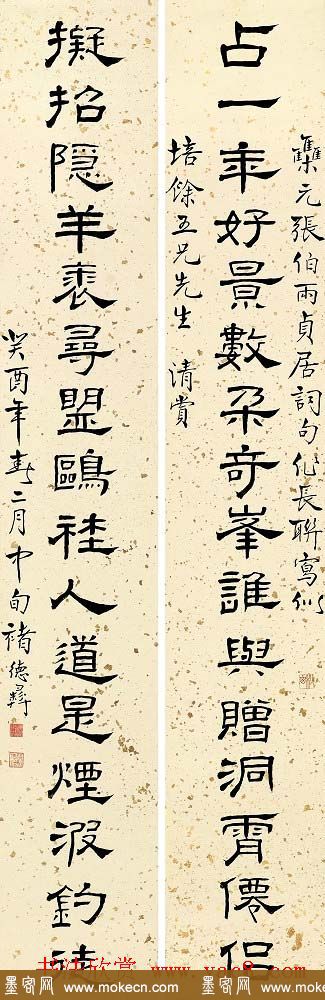 雧元張伯雨貞居詞句作長聯寫似
占一年好景數朵奇峯誰與贈洞霄僊侶
培餘五兄先生 清賞
擬招隱羊裘尋盟鷗社人道是煙波釣徒
癸酉年春二月中旬褚德彝
书法欣赏 www.yac8.com
墨客网 www.mokecn.com
墨客网 www.mokecn.com